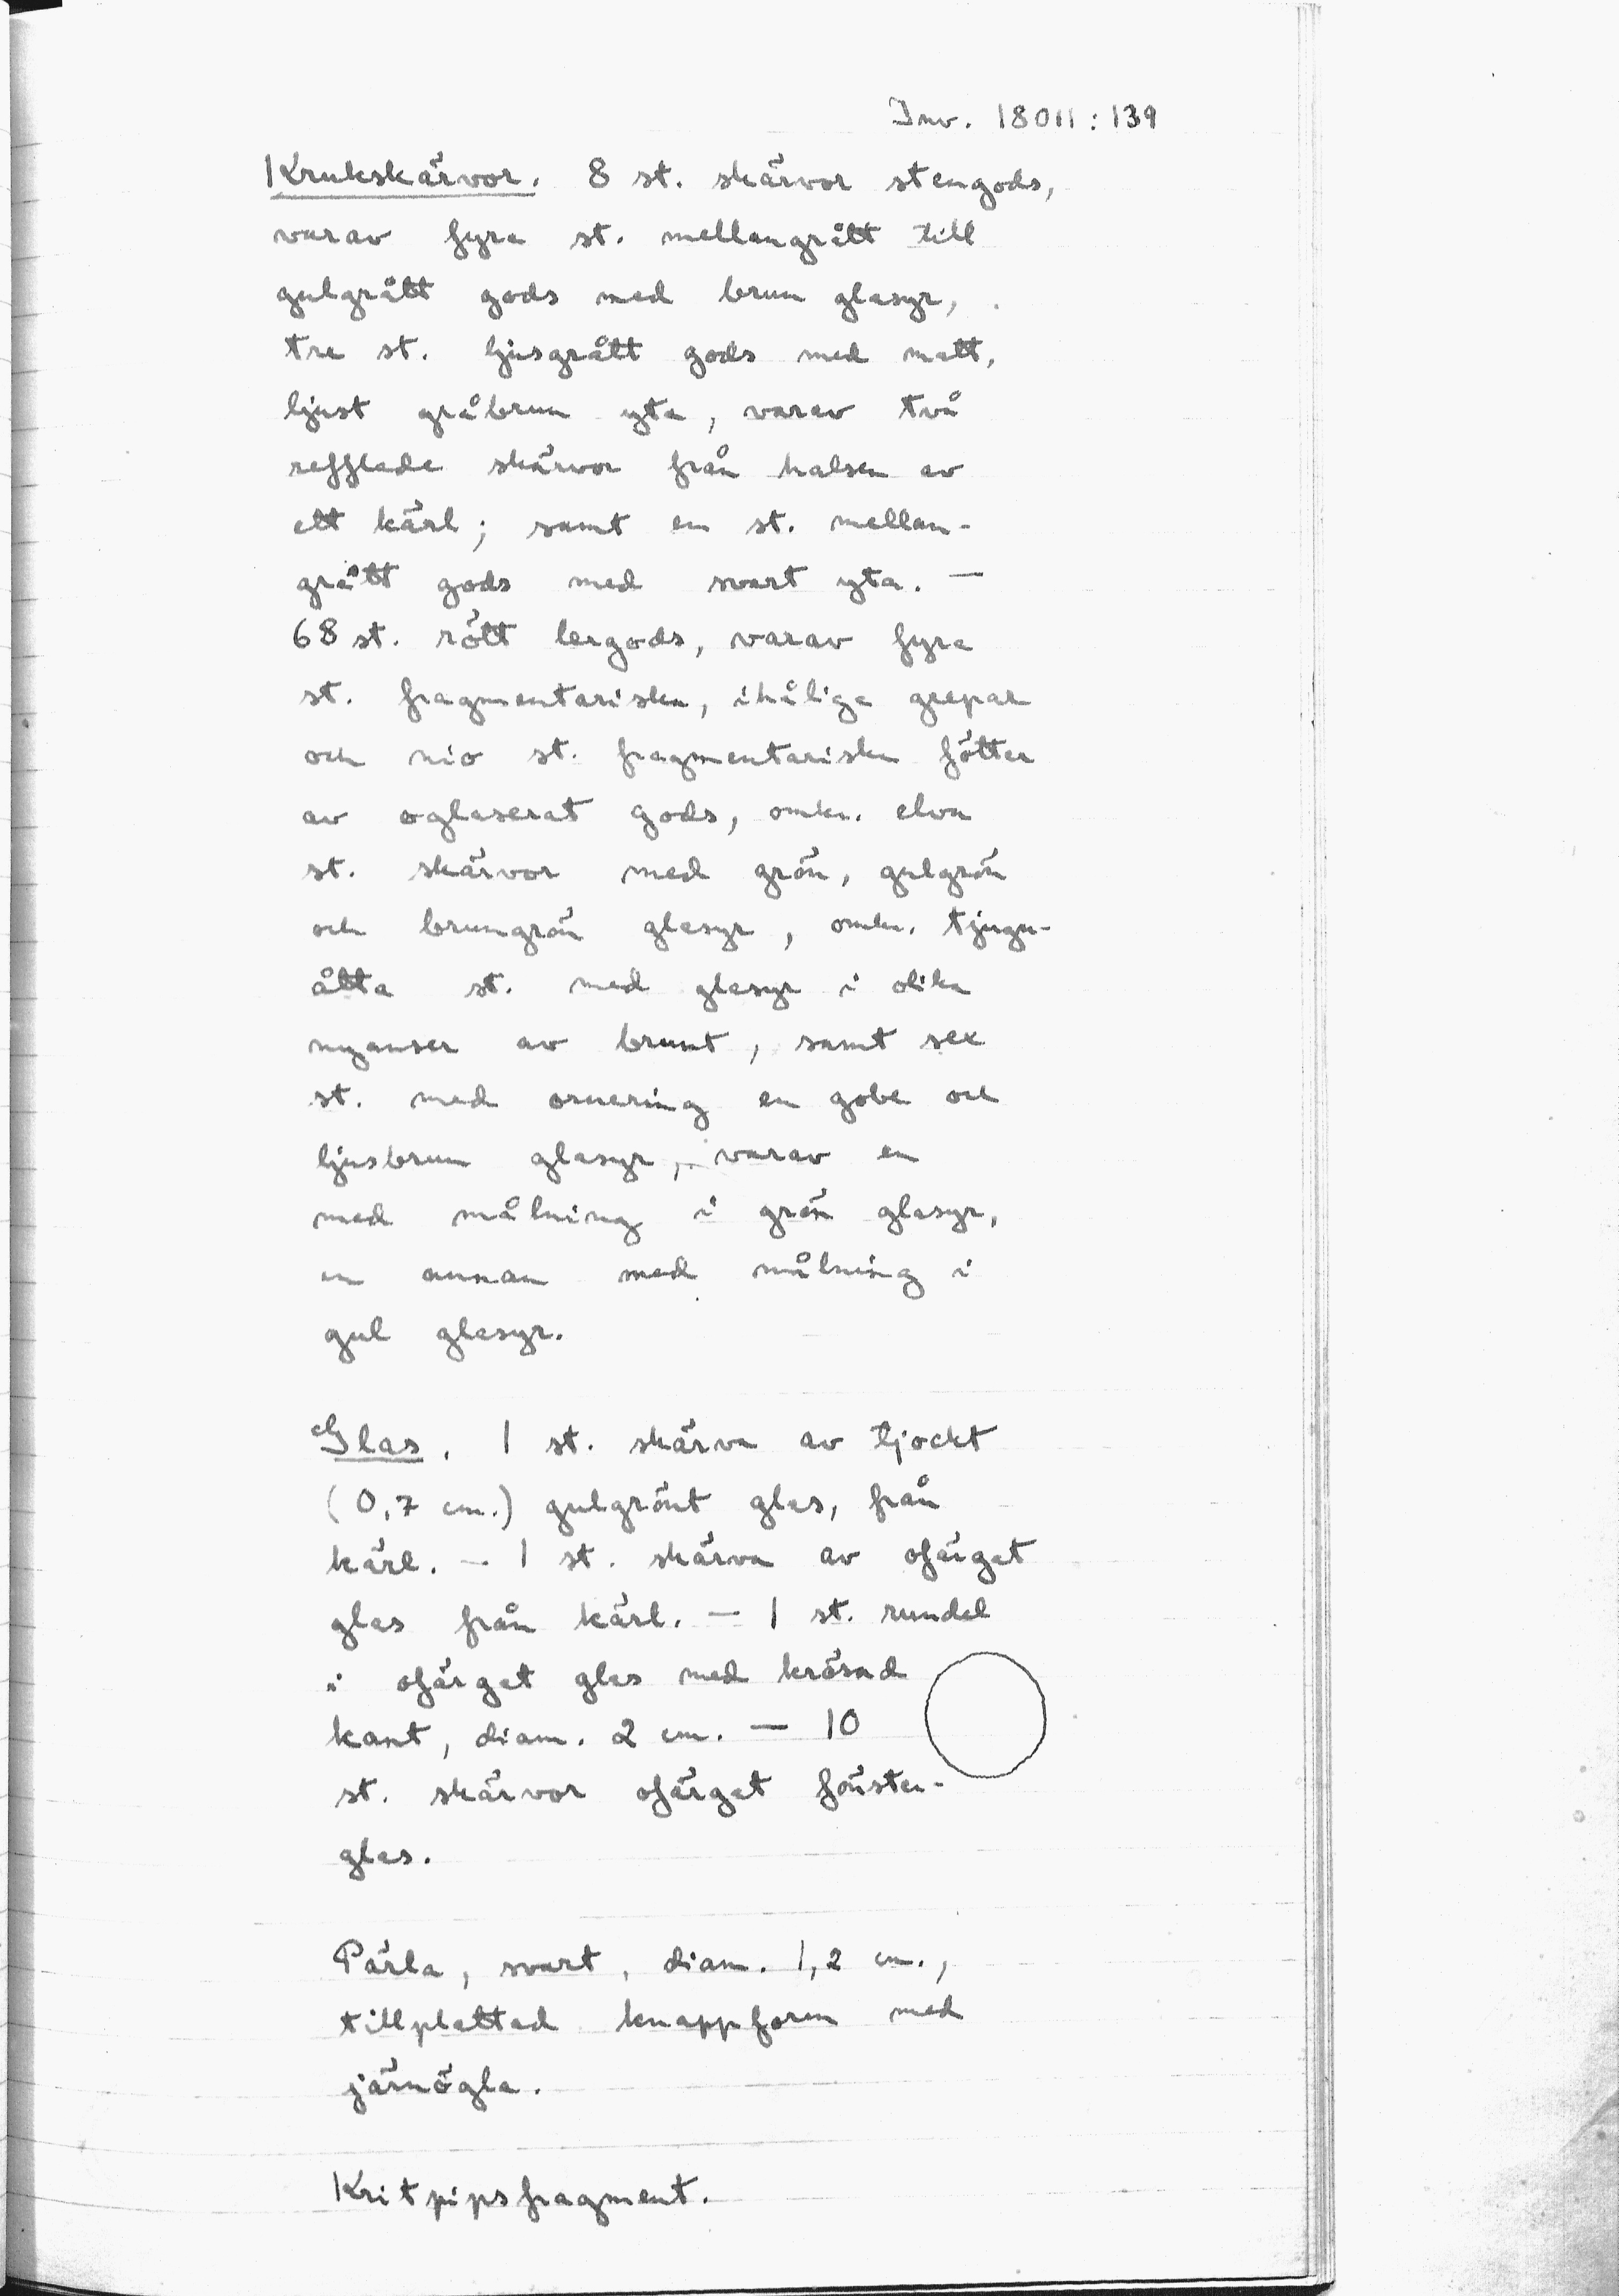 Inv. 18011:139
Krukskärvor. 8 st. skärvor stengods,
varav fyra st. mellangrått till
gulgrått gods med brun glasyr,
tre st. ljusgrått gods med matt,
ljust gråbrun yta, varav två
refflade skärvor från halsen av
ett kärl; samt en st. mellan-
grått gods med svart yta. —
68 st. rött lergods, varav fyra
st. fragmentariska, ihåliga grepar
och nio st. fragmentariska fötter
av oglaserat gods, omkr. elva
st. skärvor med grön, gulgrön
och brungrön glasyr, omkr. tjugu-
åtta st. med glasyr i olika
nyanser av brunt, samt sex
st. med ornering en gobe och
ljusbrun glasyr, varav en
med målning i grön glasyr,
en annan med målning i
gul glasyr.
Glas. 1 st. skärva av tjockt
(0,7 cm.) gulgrönt glas, från
kärl. — 1 st. skärva av ofärgat
glas från kärl. — 1 st. rundel
i ofärgat glas med krösad
kant, diam. 2 cm. — 10
st. skärvor ofärgat fönster-
glas.
Pärla, svart, diam. 1,2 cm.,
tillplattad knappform med
järnögla.
Kritpipsfragment.